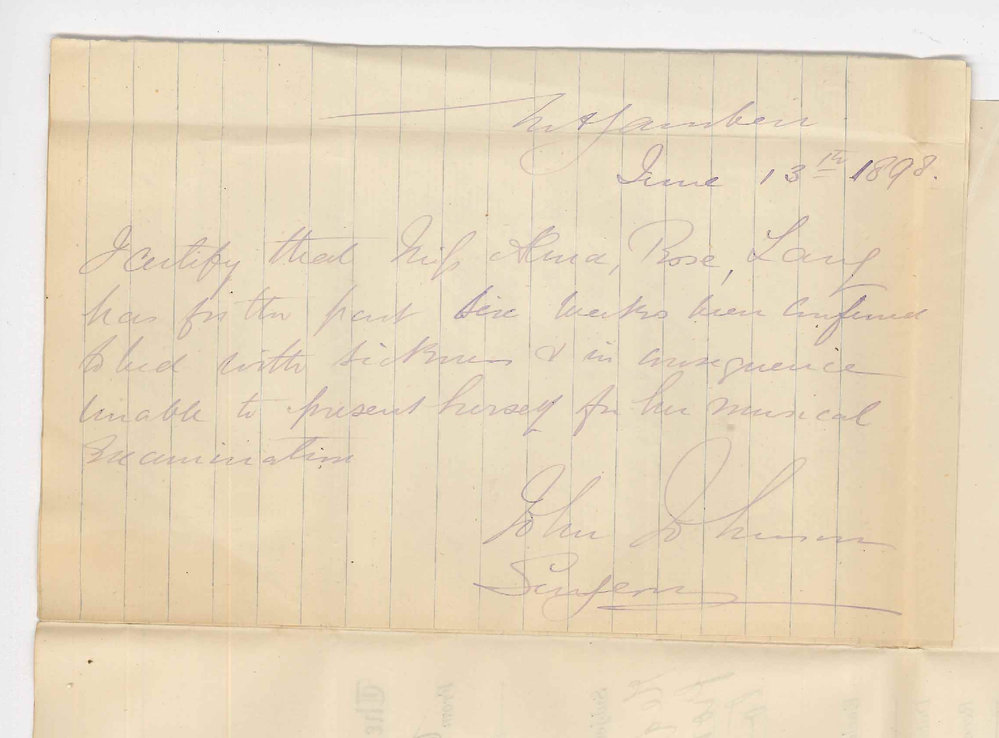 Mt Gambier
June 13th 1898.
I certify that Miss Alma, Rose, Lang
has for the past six weeks been confined
to bed with sickness & in consequence
unable to present herself for her musical
Examination
John Johnson
Surgeon
The